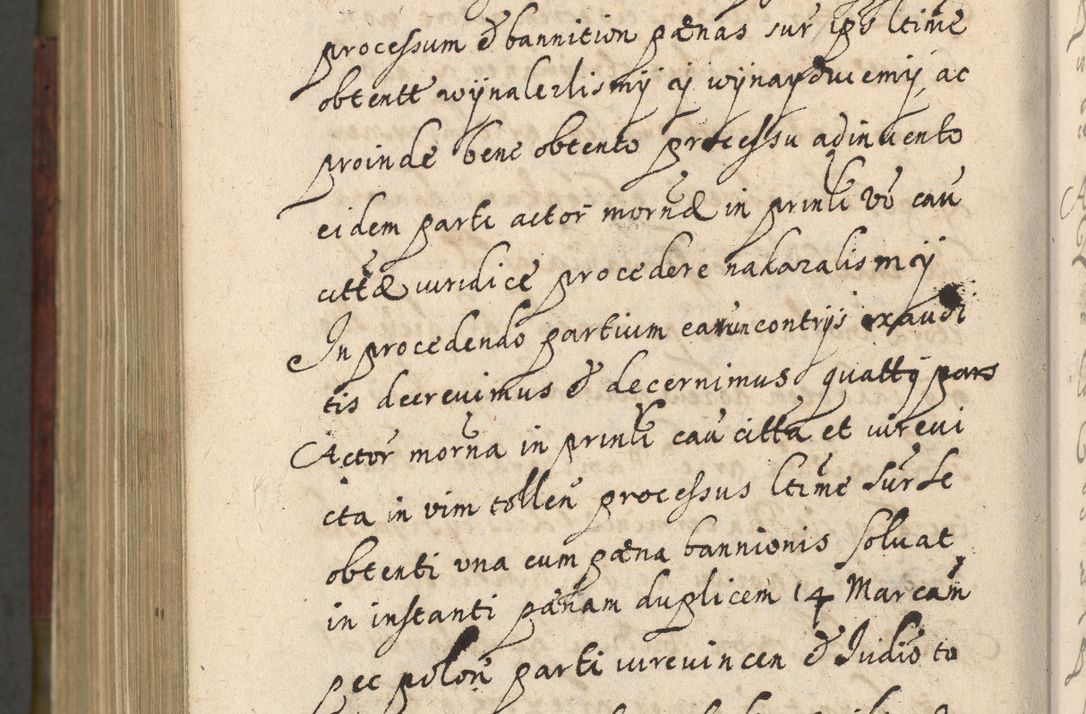 processum & bannition pænas sur ips ltime
obtentt wÿnalezlismÿ ÿ wÿnayduiemÿ, ac
proinde bene obtento processu adinvento
eidem parti actor mornæ in prinli vo cau
cittæ iuridice procedere nakazalismÿ
In procedendo partium earum contrijs exaudi
tis decrevimus & decernimus quatty pars
Actor morna in prinli cau citta et iurevi
cta in vim tollen processus ltime sur se
obtenti una cum pæna bannionis solvat
in instanti pænam duplicem 14 Marcam
pec polon parti iurevincen & Iudio to